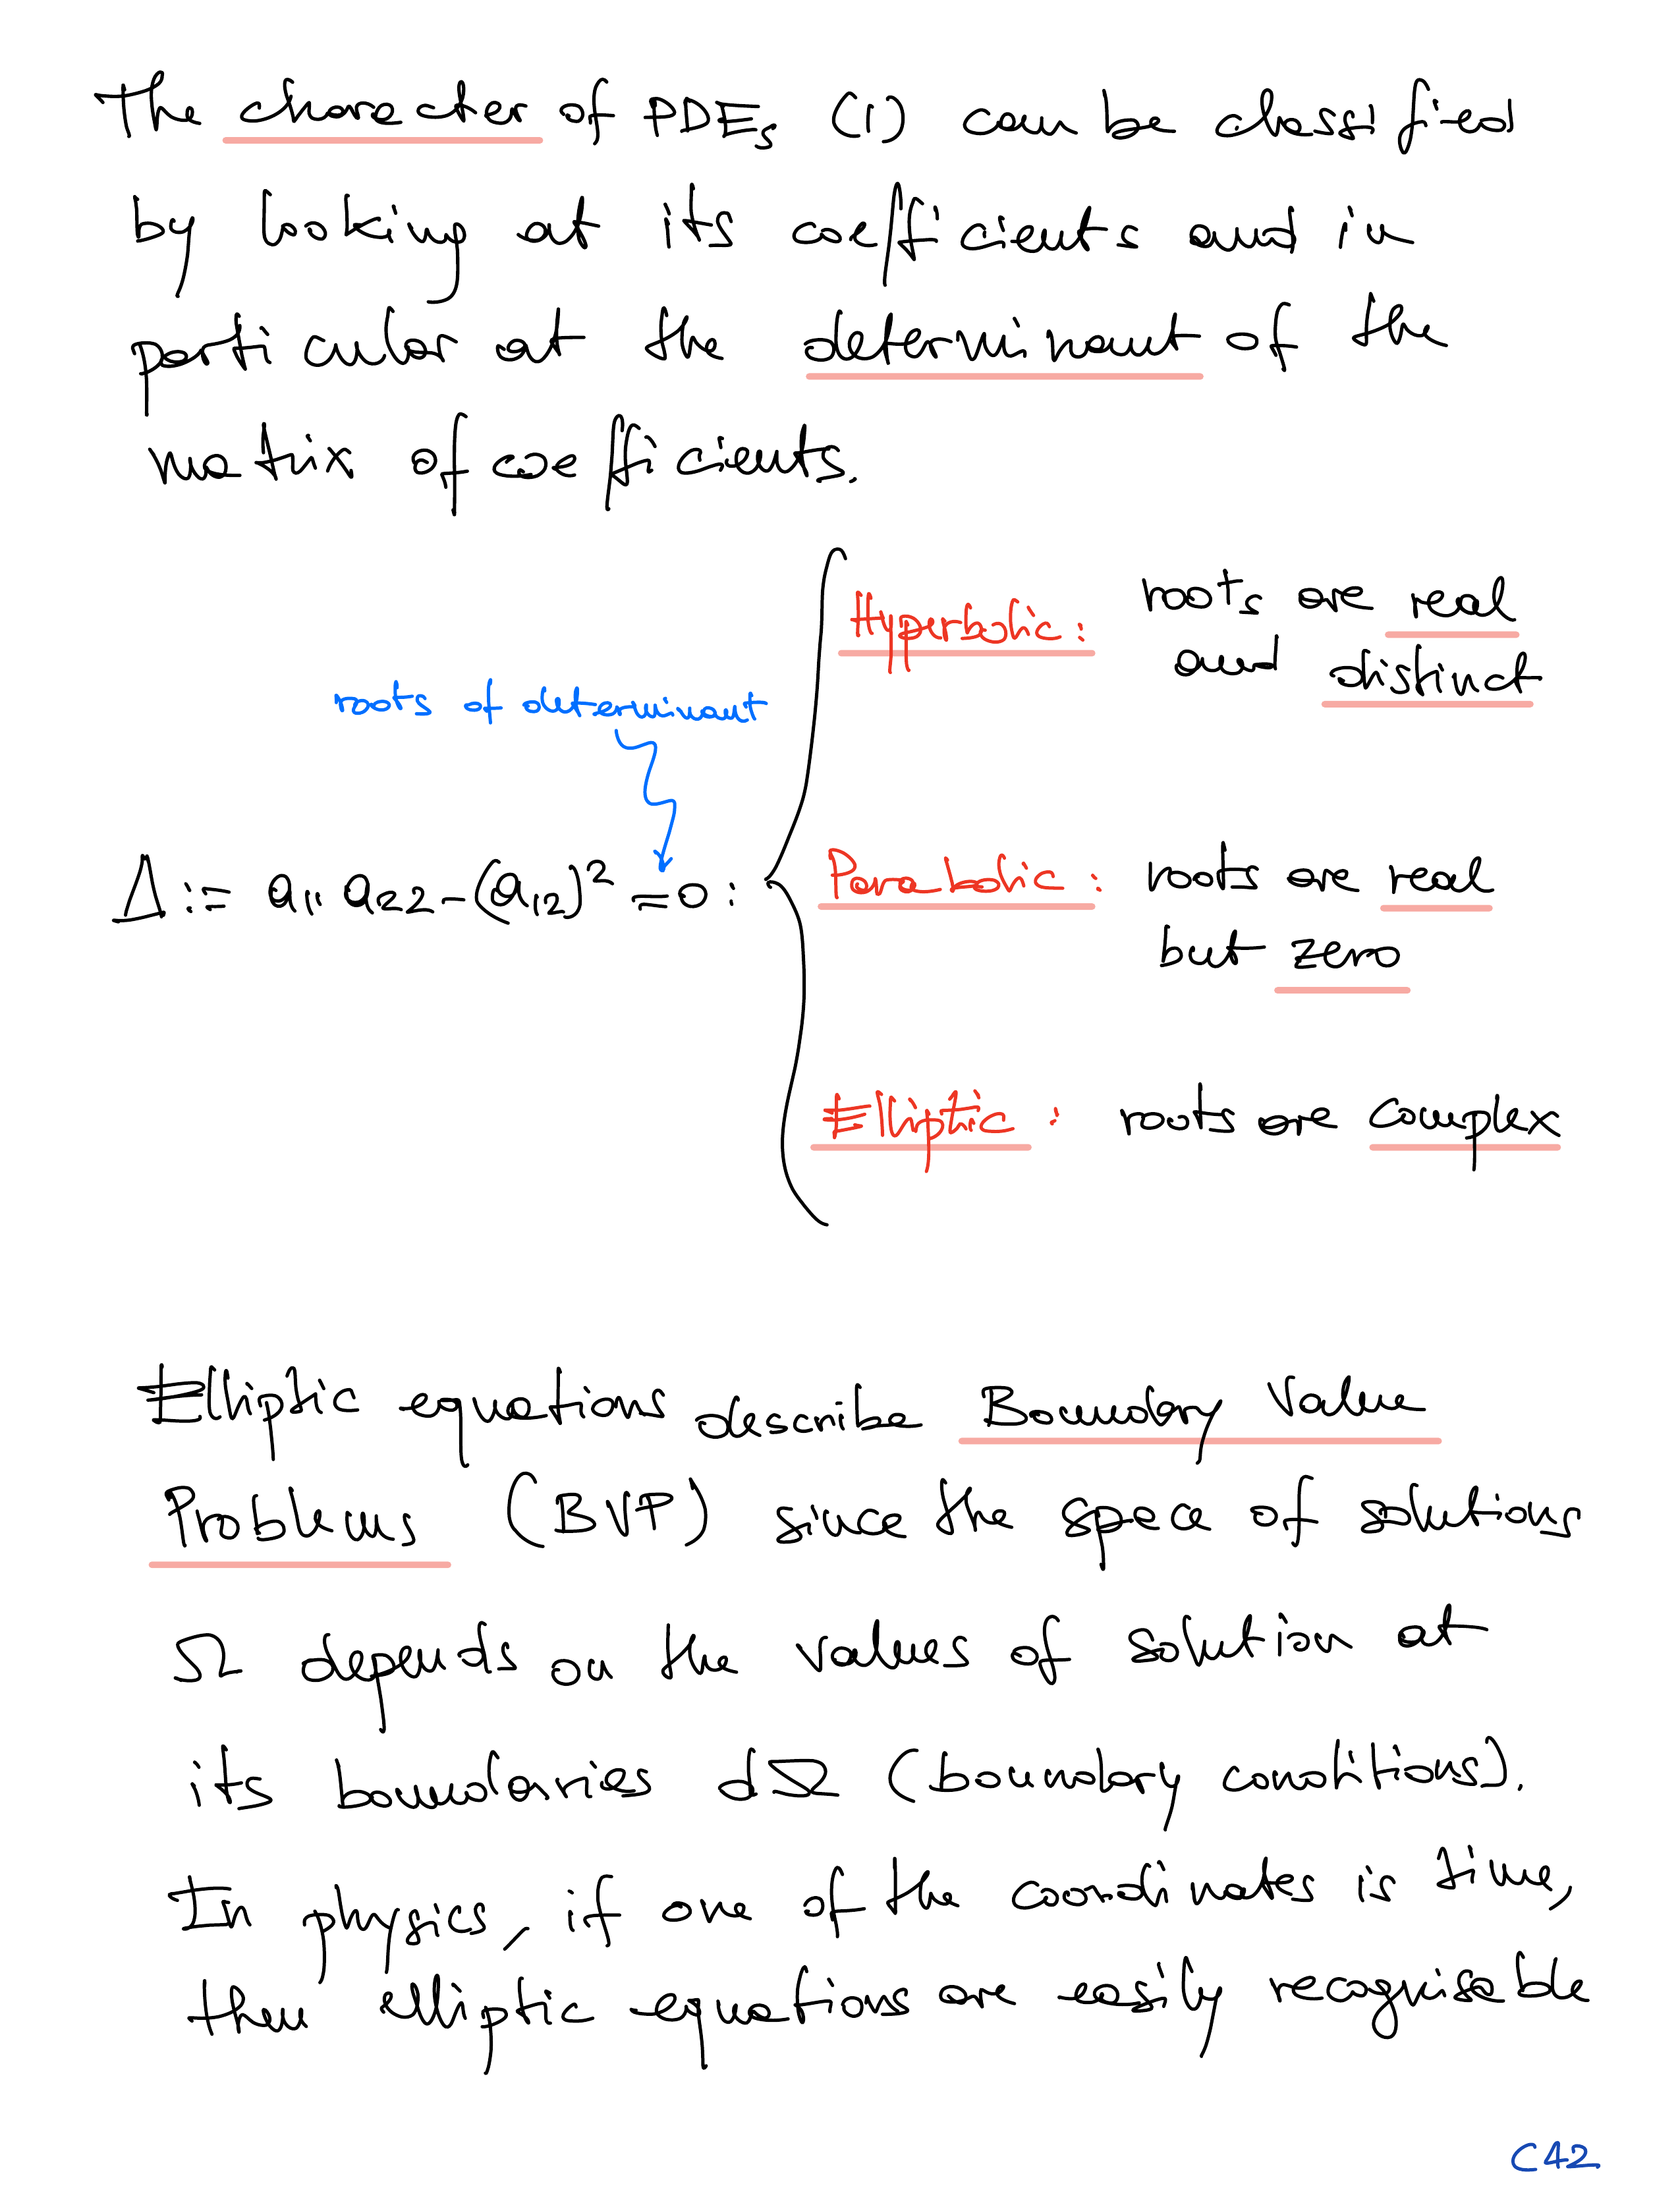 The character of PDEs (1) can be classified
by looking at its coefficients and in
particular at the determinant of the
matrix of coefficients.
Hyperbolic: roots are real
and distinct
roots of determinant
Δ := a₁₁ a₂₂ - (a₁₂)² = 0 :
Parabolic: roots are real
but zero
Elliptic: roots are complex
Elliptic equations describe Boundary Value
Problems (BVP) since the space of solutions
Ω depends on the values of solution at
its boundaries dΩ (boundary conditions).
In physics, if one of the coordinates is time,
then elliptic equations are easily recognisable
C42